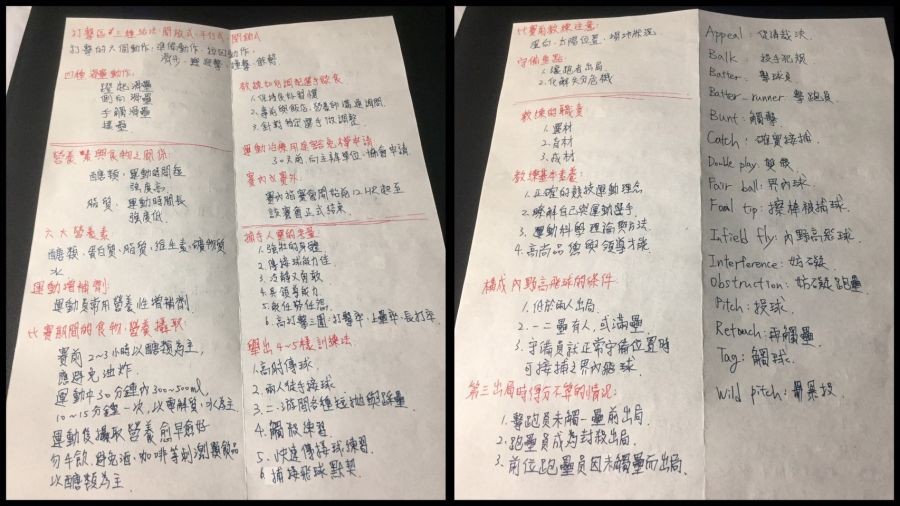 打擊區三種站法:開放式、平行式、關鎖式
打擊的六個動作:準備動作、縮回動作、
揮擊、隨球
四種滑壘動作:
蹬起滑壘
側向滑壘
手觸滑壘
撲壘
營養素與食物之關係:
醣類、運動時間短
強度高
脂質、運動時間長
強度低
六大營養素:
醣類、蛋白質、脂質、維生素、礦物質
水
運動增補劑:
運動員常用營養性增補劑
比賽期間的食物、營養攝取:
賽前2~3小時以醣類為主,
應避免油炸。
運動中30分鐘內300~500ml
10~15分鐘一次,以電解質、水為主
運動後攝取營養愈早愈好
勿牛飲,避免酒、咖啡等刺激類飲品
以醣類為主.
教練如何調配選手膳食
1. 保持良好習慣
2. 事前與飯店、營養師溝通詢問
3. 針對特定選手做調整
運動治療用途豁免權申請
30天前,向主辦單位、協會申請.
賽內及賽外:
賽內指賽會開始前12HR起至
該賽會正式結束.
捕手人選的考量:
1. 強壯的身體
2. 傳接球能力佳
3. 冷靜又勇敢
4. 具領導能力
5. 能任勞任怨
6. 高打擊三圍:打擊率、上壘率、長打率
舉出4~5樣訓練法:
1. 高肘傳球.
2. 兩人徒手接球
4. 觸殺練習
5. 快速傳接球練習
6. 捕接飛球默契
比賽前教練注意:
風向、太陽位置、場地狀況
守備重點:
1. 讓跑者出局
2. 化解失分危機
教練的職責:
1. 選材
2. 育材
3. 成材
教練基本素養:
1. 正確的競技運動理念
2. 瞭解自己與運動選手.
3. 運動科學理論與方法
4. 高尚品德與領導才能
構成內野高飛球的條件
1. 低於兩人出局.
2. 一二壘有人,或滿壘.
3. 守備員就正常守備位置時
可接捕之界內飛球.
第三出局時得分不算的情況:
1. 擊跑員未觸一壘前出局.
2. 跑壘員成為封殺出局.
3. 前位跑壘員因未觸壘而出局.
Appeal:促請裁決.
Balk:投手犯規
Batter:擊球員
Batter_runner:擊跑員
Bunt:觸擊
Catch:確實接捕
Double play:雙殺
Fair ball:界內球
Foul tip:擦棒被捕球.
Infield fly:內野高飛球.
Interference:妨礙.
Obstruction:妨礙跑壘
Pitch:投球.
Retouch:再觸壘.
Tag:觸球.
Wild pitch:暴投